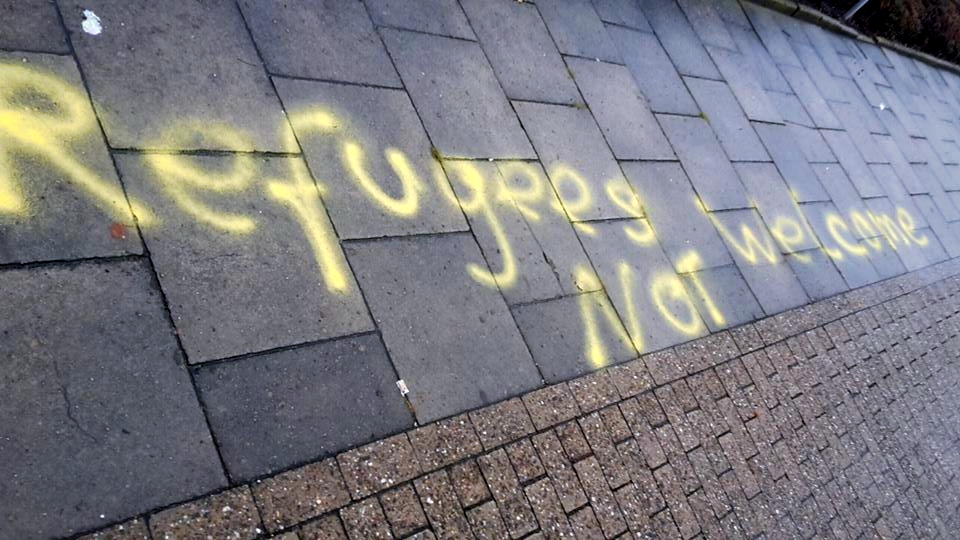 Refugees Welcome
NOT